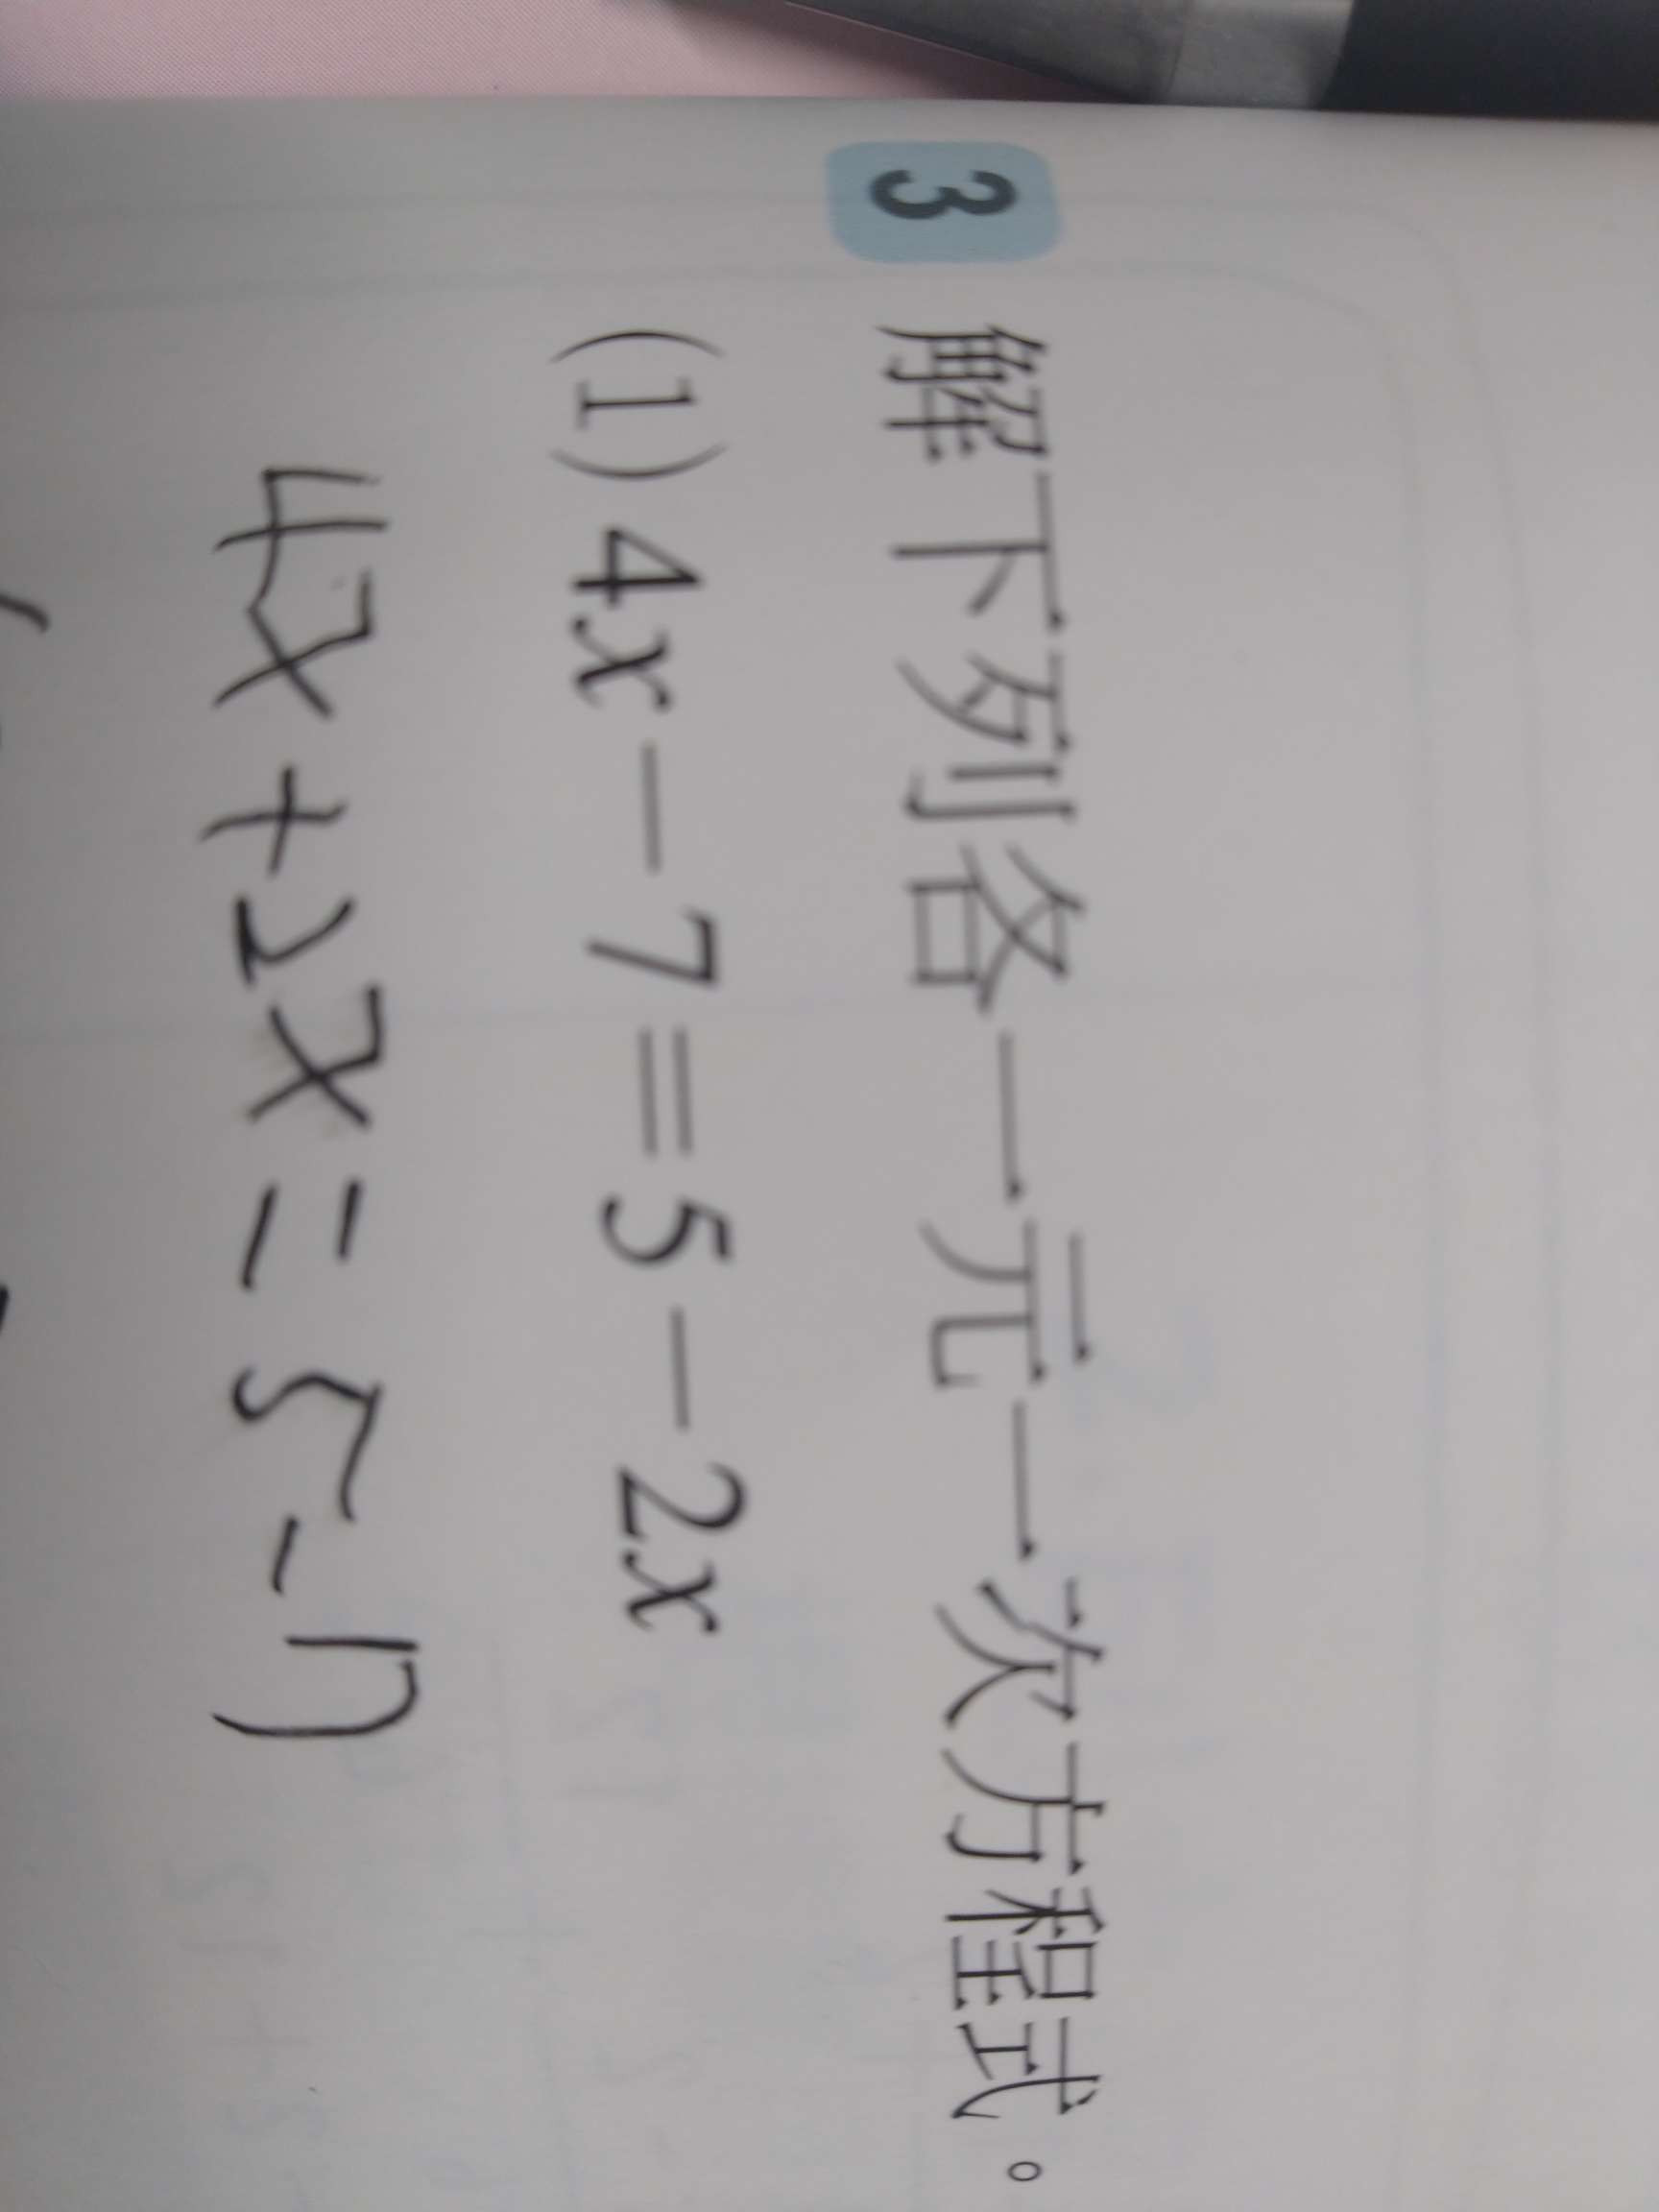 3 解下列各一元一次方程式。
(1) 4x－7＝5－2x
4x+2x=5-7